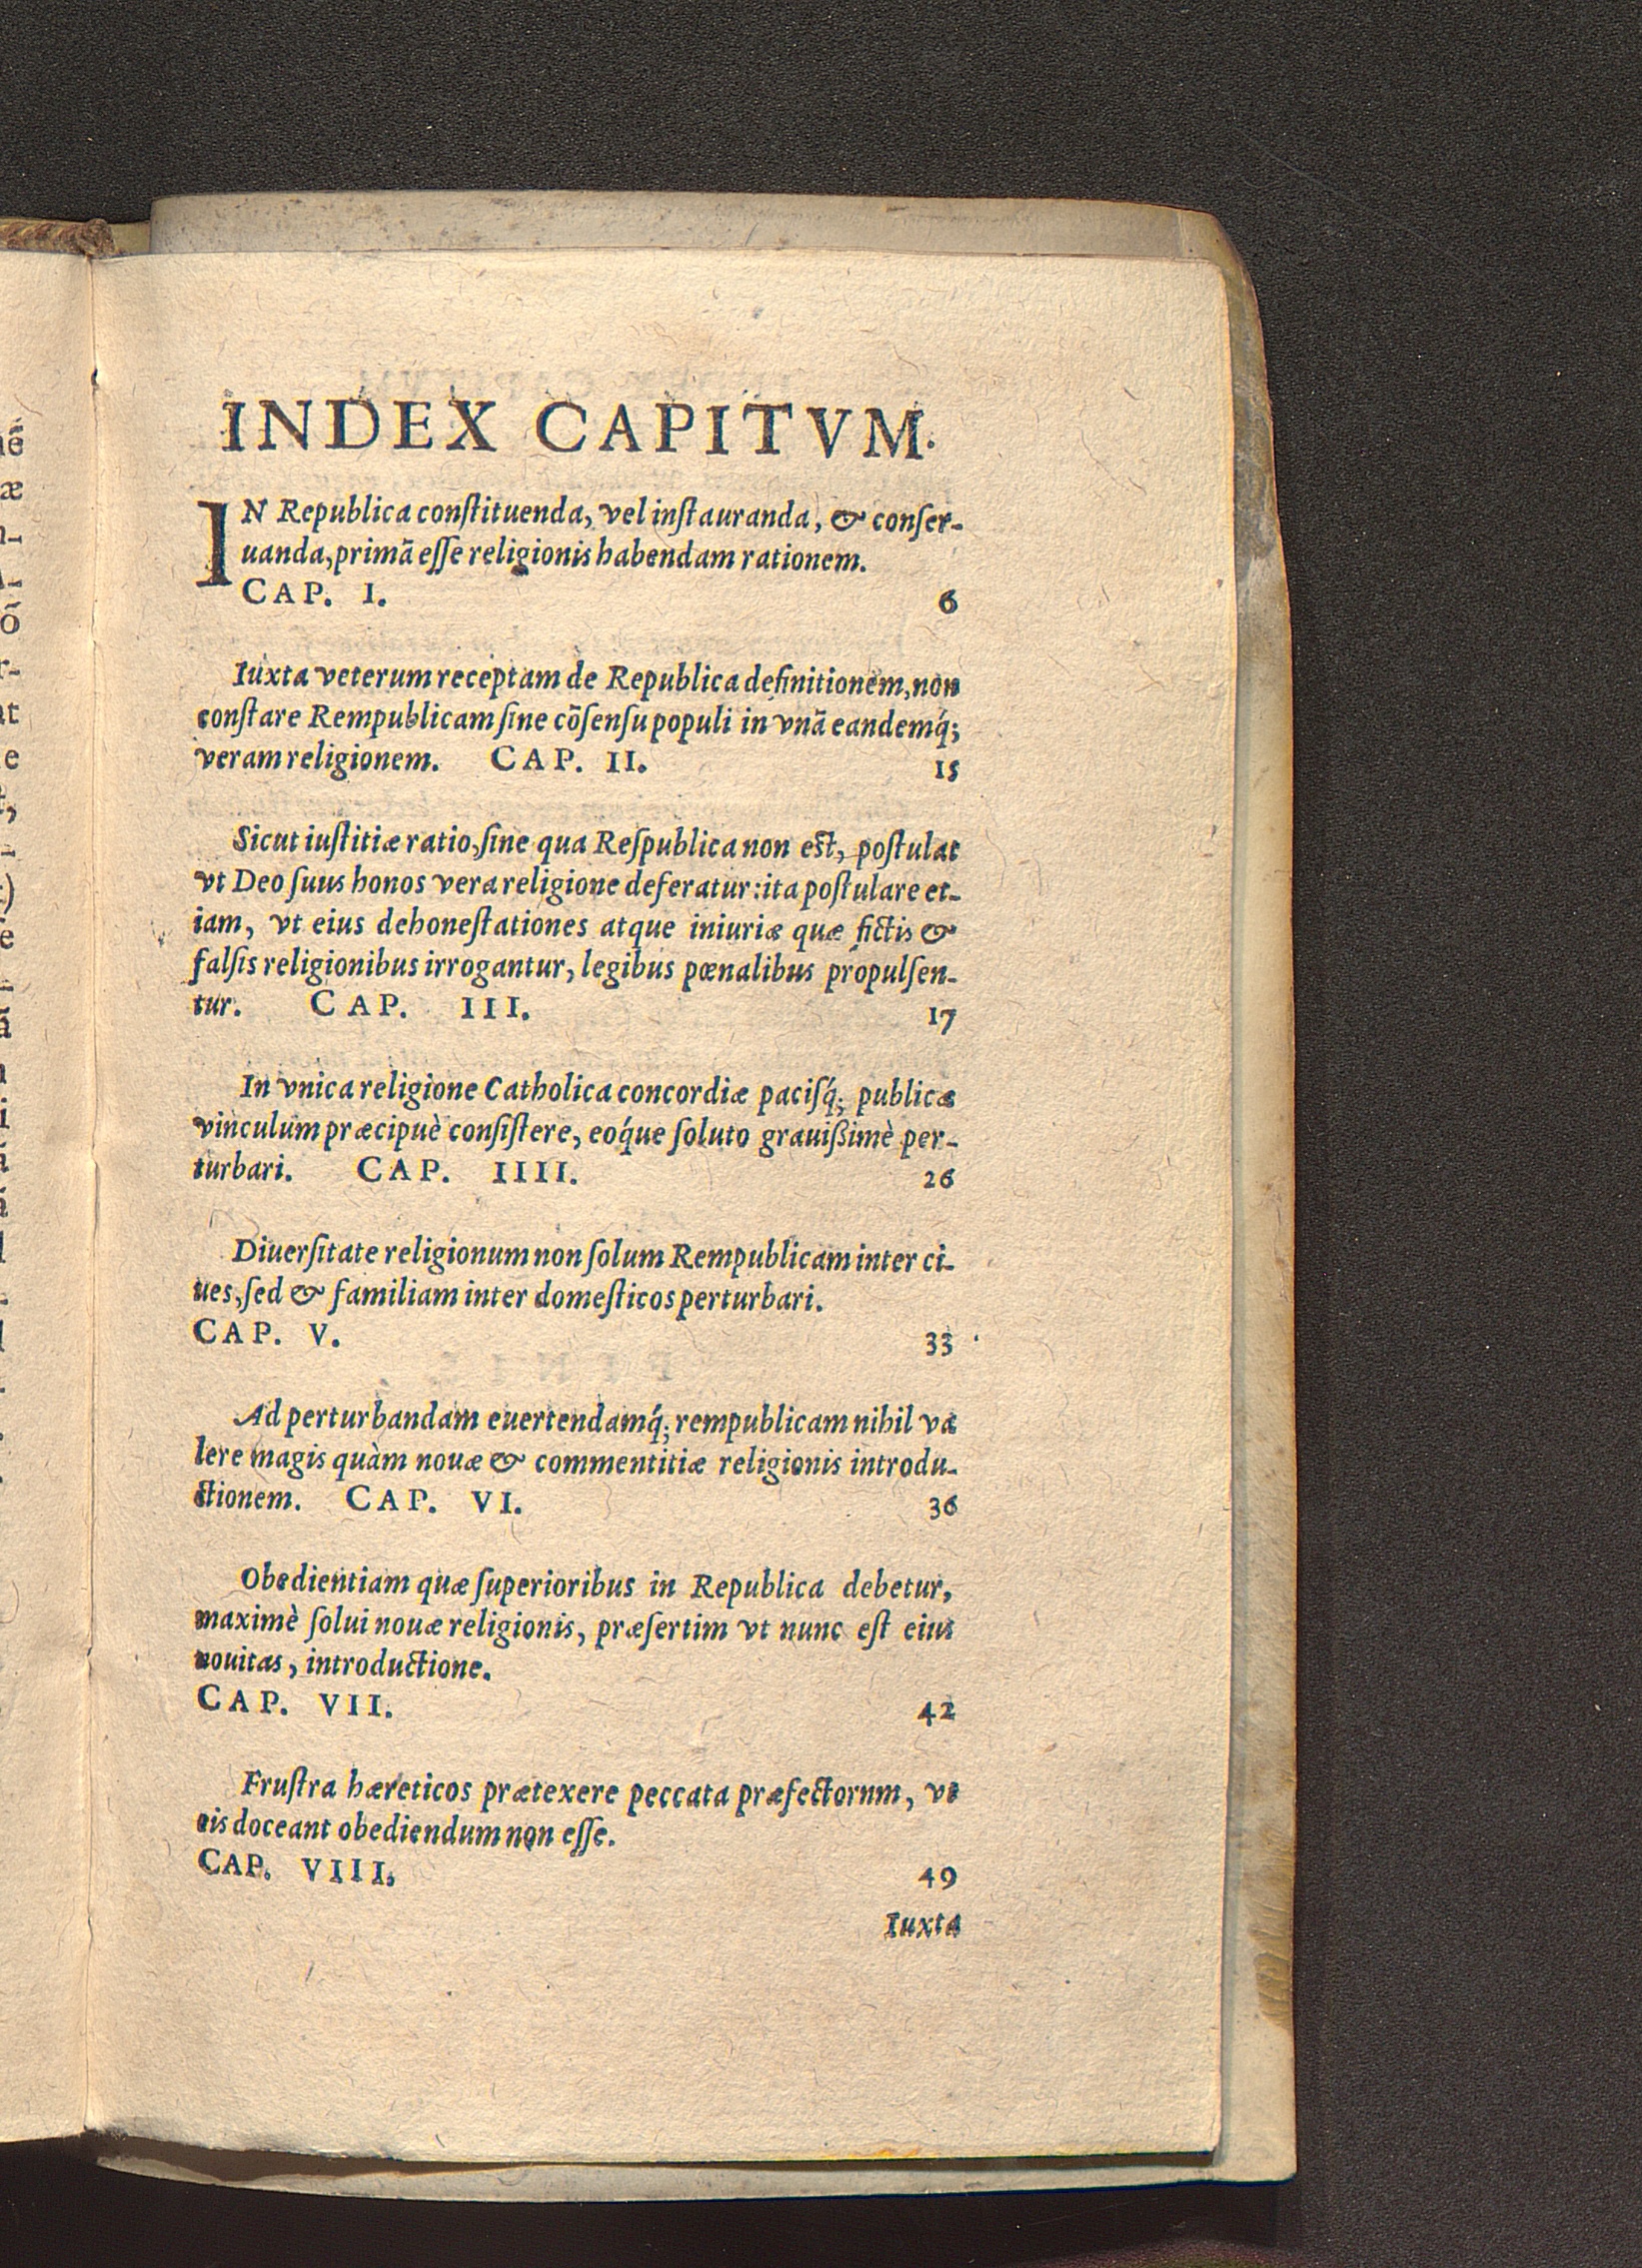 INDEX CAPITVM.
IN Republica conſtituenda, vel inſtauranda, & conſer-
uanda, primā eſſe religionis habendam rationem.
CAP. I. 6
Iuxta veterum receptam de Republica definitionem, non
conſtare Rempublicam ſine cōſenſu populi in vnā eandemq́;
veram religionem. CAP. II. 15
Sicut iuſtitiæ ratio, ſine qua Reſpublica non eſt, poſtulat
vt Deo ſuus honos vera religione deferatur: ita poſtulare et-
iam, vt eius dehoneſtationes atque iniuriæ quæ fictis &
falſis religionibus irrogantur, legibus pœnalibus propulſen-
tur. CAP. III. 17
In vnica religione Catholica concordiæ paciſq́; publicæ
vinculum præcipuè conſiſtere, eoq́ue ſoluto grauißimè per-
turbari. CAP. IIII. 26
Diuerſitate religionum non ſolum Rempublicam inter ci-
ues, ſed & familiam inter domeſticos perturbari.
CAP. V. 33
Ad perturbandam euertendamq́; rempublicam nihil va
lere magis quàm nouæ & commentitiæ religionis introdu-
ctionem. CAP. VI. 36
Obedientiam quæ ſuperioribus in Republica debetur,
maximè ſolui nouæ religionis, præſertim vt nunc eſt eius
nouitas, introductione.
CAP. VII. 42
Fruſtra hæreticos prætexere peccata præfectornm, vt
eis doceant obediendum non eſſe.
CAP. VIII. 49
Iuxta